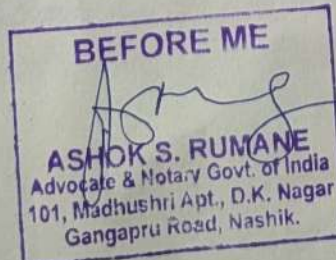 BEFORE ME
ASHOK S. RUMANE
Advocate & Notary Govt. of India
101, Madhushri Apt., D.K. Nagar
Gangapru Road, Nashik.